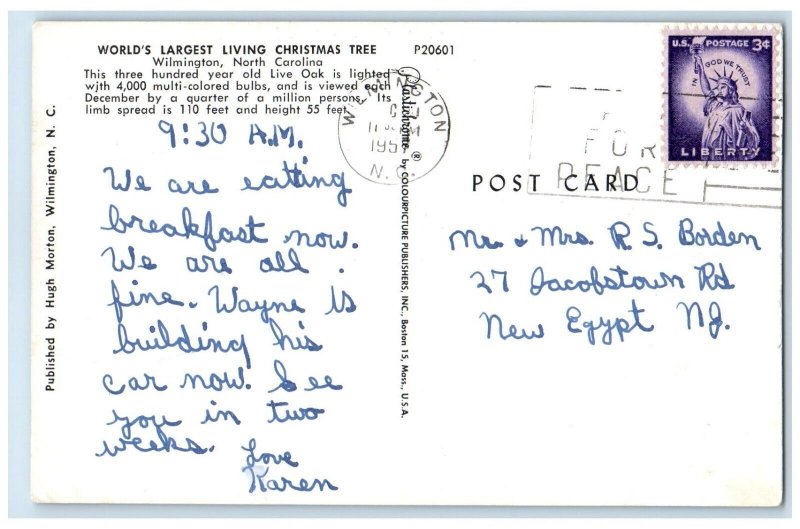 WORLD'S LARGEST LIVING CHRISTMAS TREE P20601
Wilmington, North Carolina
This three hundred year old Live Oak is lighted
with 4,000 multi-colored bulbs, and is viewed each
December by a quarter of a million persons. Its
limb spread is 110 feet and height 55 feet.
9:30 A.M.
We are eating
breakfast now.
We are all
fine. Wayne is
building his
car now. See
you in two
weeks.
Love
Karen
Published by Hugh Morton, Wilmington, N. C.
Plastichrome ® by COLOURPICTURE PUBLISHERS, INC., Boston 15, Mass., U.S.A.
WILMINGTON
N.C.
FOR
PEACE
U.S. POSTAGE 3¢
IN GOD WE TRUST
LIBERTY
POST CARD
Mr. & Mrs. R. S. Borden
27 Jacobstown Rd
New Egypt NJ.